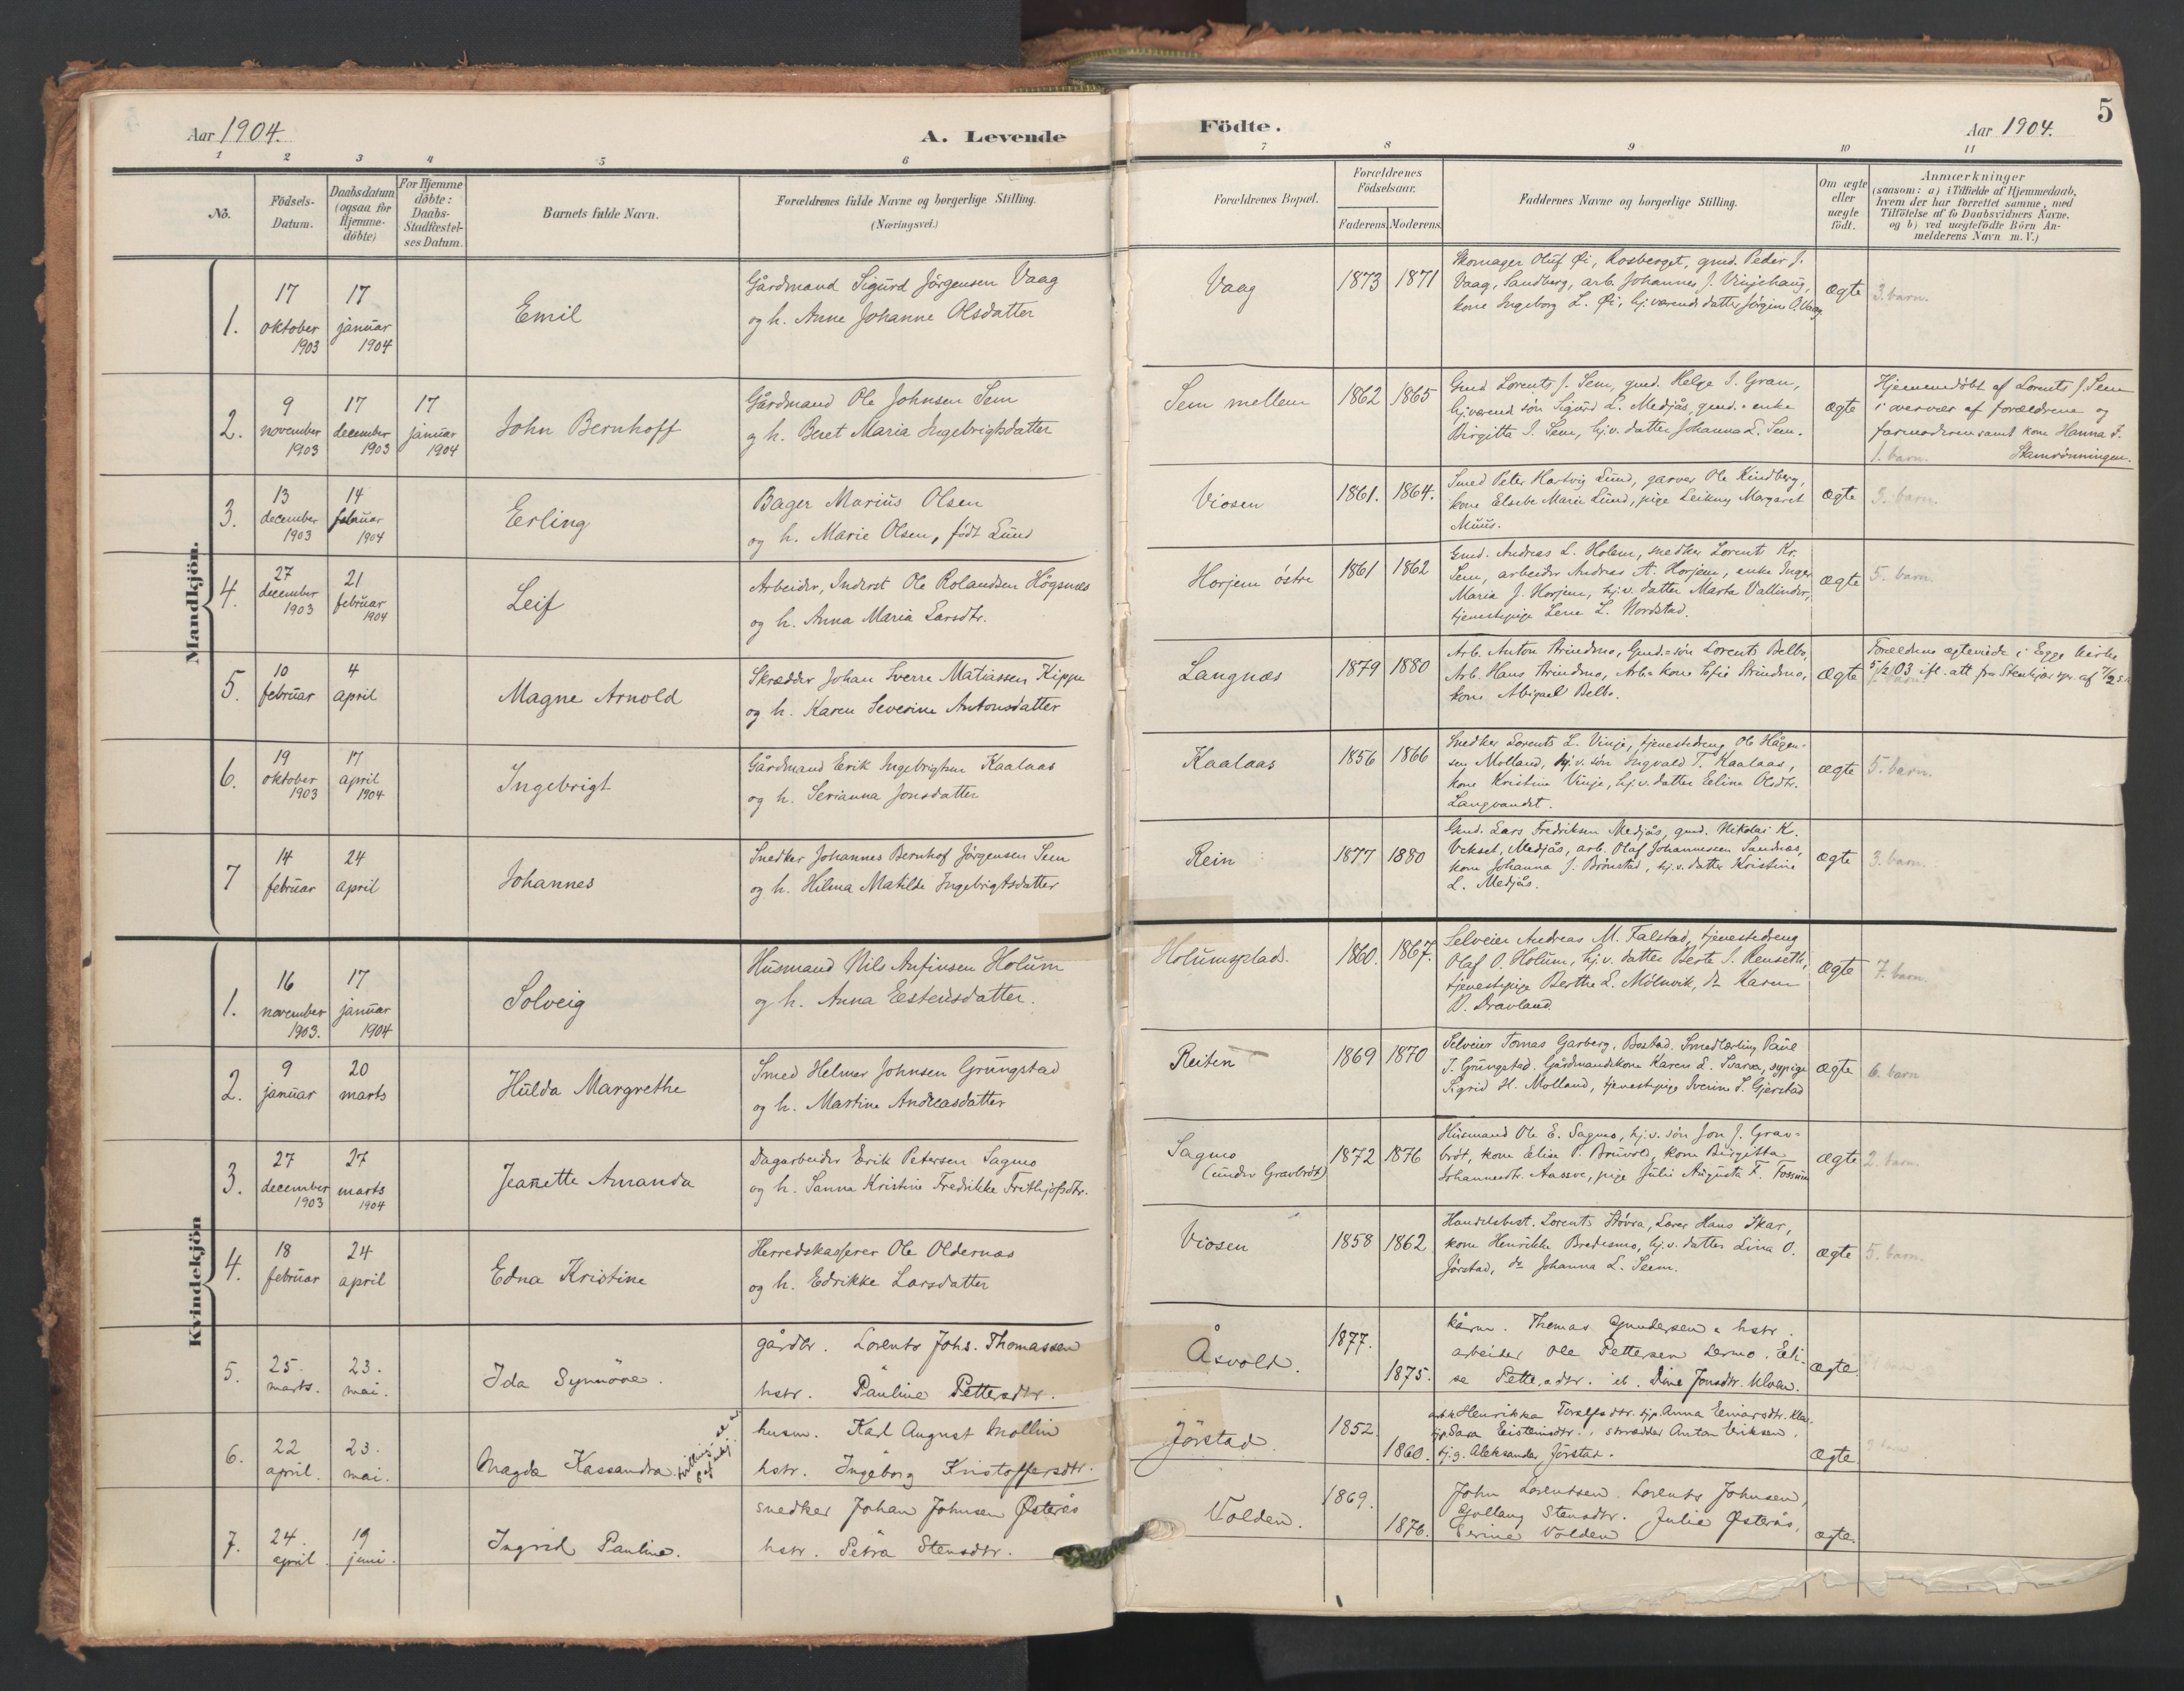 Aar 1904.
A. Levende
Födte.
Aar 1904.
5
1 2 3 4 5 6 7 8 9 10 11
No.
Födsels-
Datum.
Daabsdatum
(ogsaa for
Hjemme-
döbte)
For Hjemme
döbte:
Daabs-
Stadfæstel-
ses Datum.
Barnets fulde Navn.
Forældrenes fulde Navne og borgerlige Stilling.
(Næringsvei.)
Forældrenes Bopæl.
Forældrenes
Födselsaar.
Faderens. Moderens.
Faddernes Navne og borgerlige Stilling.
Om ægte
eller
uægte
födt.
Anmærkninger
(saasom: a) i Tilfælde af Hjemmedaab,
hvem der har forrettet samme, med
Tilföielse af to Daabsvidners Navne.
og b) ved uægtefödte Börn An-
melderens Navn m. V.)
Mandkjön.
1.
17
oktober
1903
17
januar
1904
Emil
Gårdmand Sigurd Jörgensen Vaag
og h. Anne Johanne Olsdatter
Vaag
1873 1871
Skomager Oluf Øi, Rosberget, gmd. Peder J.
Vaag, Sandberg, arb. Johannes J. Vinjehaug,
kone Ingeborg L. Øi, hj.værende datter Jörgine O. Vaag
ægte
3. barn.
2.
9
november
1903
17
december
1903
17
januar
1904
John Bernhoff
Gårdmand Ole Johnsen Sem
og h. Beret Maria Ingebrigtsdatter
Sem mellem
1862 1865
Gmd Lorents J. Sem, gmd. Helge I. Gran,
hj.værend sön Sigurd L. Medjås, gmd.s enke
Birgitta I. Sem, hj.v. datter Johanna L. Sem.
ægte
Hjemmedöbt af Lorents J. Sem
i overvær af forældrene og
farmoderen samt kone Hanna F.
1. barn. Skamrönningen.
3.
13
december
1903
14
februar
1904
Erling
Bager Marius Olsen
og h. Marie Olsen, födt Lund
Viosen
1861. 1864.
Smed Peter Hartvig Lund, garver Ole Kindberg,
kone Elsebe Marie Lund, pige Leikny Margaret
Muus.
ægte
3. barn.
4.
27
december
1903
21
februar
1904
Leif
Arbeider, Inderst Ole Rolandsen Högsnes
og h. Anna Maria Larsdtr.
Horjem östre
1861 1862
Gmd. Andreas L. Holem, snedker Lorents Kr.
Sem, arbeider Andreas A. Horjem, enke Inger
Maria J. Horjem, hj.v. datter Marta Vallinder,
tjenestepige Lene L. Nordstad.
ægte
5. barn.
5.
10
februar
4
april
Magne Arnold
Skrædder Johan Sverre Matiassen Kippe
og h. Karen Severine Antonsdatter
Langnæs
1879 1880
Arb. Anton Strindmo, Gmd.s sön Lorents Belbo,
Arb. Hans Strindmo, Arb.s kone Sofie Strindmo,
kone Abigael Belbo.
ægte
Forældrene ægteviede i Egge kirke
5/12 03 ifl. att fra Stenkjær spr. af 7/2 s.a.
6.
19
oktober
1903
17
april
1904
Ingebrigt
Gårdmand Erik Ingebrigtsen Kaalaas
og h. Serianna Jonsdatter
Kaalaas
1856 1866
Snedker Lorents L. Vinje, tjenestedreng Ole Hågen-
sen Molland, hj.v. sön Ingvald T. Kaalaas,
kone Kristine Vinje, hj.v. datter Eline Olsdtr.
Langvandet.
ægte
5. barn.
7
14
februar
24
april
Johannes
Snedker Johannes Bernhof Jörgensen Sem
og h. Hilma Matilde Ingebrigtsdatter
Rein
1877 1880
Gmd. Lars Fredriksen Medjås, gmd. Nikolai K.
Vekset, Medjås, arb. Olaf Johannessen Sandnæs,
kone Johanna J. Brönstad, hj.v. datter Kristine
L. Medjås.
ægte
3. barn.
Kvindekjön
1.
16
november
1903.
17
januar
1904
Solveig
Husmand Nils Anfinsen Holum
og h. Anna Eestensdatter.
Holumsplads.
1860. 1867.
Selveier Andreas M. Falstad, tjenestedreng
Olaf O. Holum, hj.v. datter Berte I. Renseth,
tjenestepige Berthe L. Mölnvik, do Karen
D. Dravland.
ægte
7. barn
2.
9
januar
20
marts
Hulda Margrethe
Smed Helmer Johnsen Grungstad
og h. Martine Andreasdatter
Reiten
1869 1870
Selveier Tomas Garberg, Bostad. Smedlærling Paul
J. Grungstad. Gårdmandskone Karen L. Svarva, sypige
Sigrid H. Molland, tjenestepige Iverine S. Gjerstad
ægte
6. barn
3.
27
december
1903
27
marts
1904
Jeanette Amanda
Dagarbeider Erik Petersen Sagmo
og h. Sanna Kristine Fredrikke Frithjofsdtr.
Sagmo
(under Gravbröt)
1872 1876
Husmand Ole E. Sagmo, hj.v. sön Jon J. Grav-
bröt, kone Elise P. Bruvold, kone Birgitta
Johannesdtr. Aassve, pige Julie Augusta F. Fossum
ægte
2. barn.
4.
18
februar
24
april
Edna Kristine
Herredskasserer Ole Oldernæs
og h. Edrikke Larsdatter
Viosen
1858 1862
Handelsbest. Lorents Stövra, Lærer Hans Skar,
kone Henrikke Bredesmo, hj.v. datter Lina O.
Jörstad, do Johanna L. Seem.
ægte
5. barn.
5.
25.
marts.
23.
mai.
Ida Synnöve.
gårdbr. Lorents Johs. Thomassen
hstr. Pauline Pettersdtr.
Åsvold.
1877.
1875.
kårm. Thomas Gundersen & hstr.
arbeider Ole Pettersen Lermo. Eli-
se Pettersdtr. Dine Jonsdtr. Klvan.
ægte.
6.
22
april.
23.
mai.
Magda Kassandra.
husm. Karl August Mollin
hstr. Ingeborg Kristoffersdtr.
Jörstad.
1852.
1860.
Henrikka Toralfsdtr. tjp. Anna Einarsdtr.
tjp. Sara Eisteinsdtr., skrædder Anton Eriksen,
tj.g. Aleksander Jörstad.
ægte
7.
24.
april.
19
juni.
Ingrid Pauline.
snedker Johan Johnsen Østerås
hstr. Petra Stensdtr.
Volden.
1869.
1876.
John Lorentsen. Lorents Johnsen,
Gollaug Stensdtr. Julie Østerås,
Perine Volden
ægte.